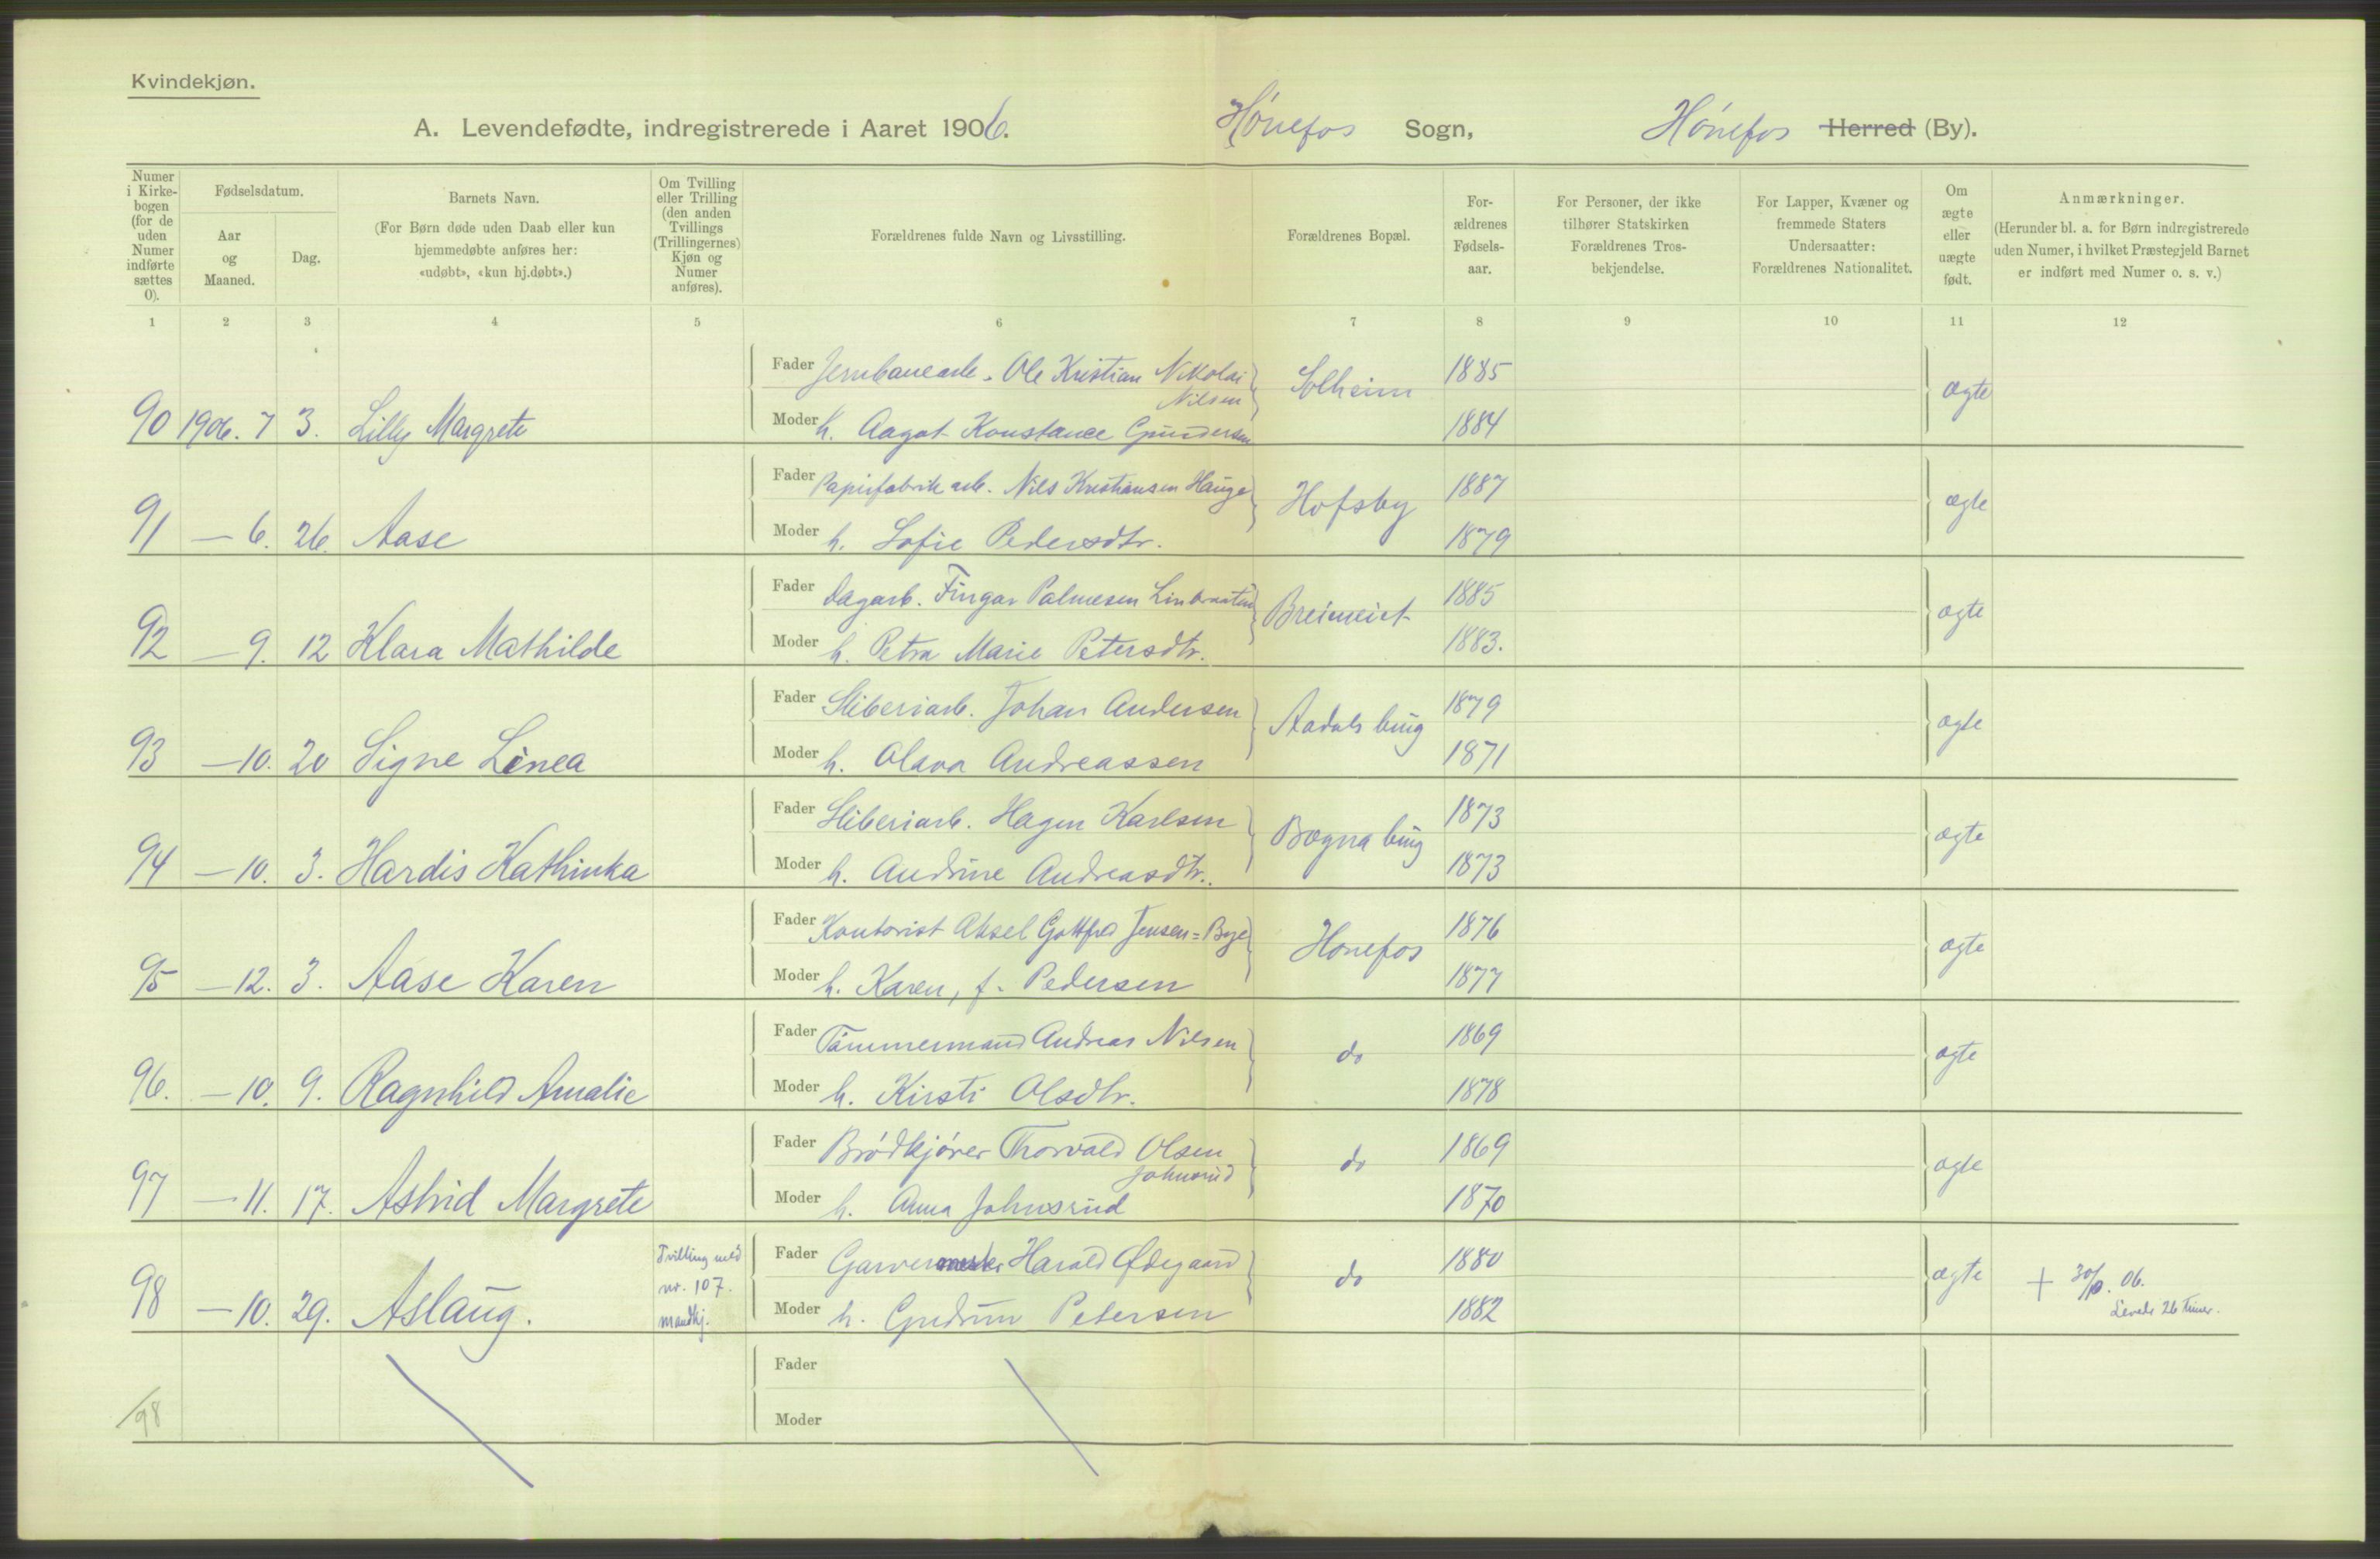 Kvindekjøn.
A. Levendefødte, indregistrerede i Aaret 1906. Hønefos Sogn, Hønefos Herred (By).
Numer i Kirkebogen (for de uden Numer indførte sættes 0).
Fødselsdatum.
Aar og Maaned.
Dag.
Barnets Navn.
(For Børn døde uden Daab eller kun
hjemmedøbte anføres her:
«udøbt», «kun hj.døbt».)
Om Tvilling
eller Trilling
(den anden
Tvillings
(Trillingernes)
Kjøn og
Numer
anføres).
Forældrenes fulde Navn og Livsstilling.
Forældrenes Bopæl.
For-
ældrenes
Fødsels-
aar.
For Personer, der ikke
tilhører Statskirken
Forældrenes Tros-
bekjendelse.
For Lapper, Kvæner og
fremmede Staters
Undersaatter:
Forældrenes Nationalitet.
Om
ægte
eller
uægte
født.
Anmærkninger.
(Herunder bl. a. for Børn indregistrerede
uden Numer, i hvilket Præstegjeld Barnet
er indført med Numer o. s. v.)
1 2 3 4 5 6 7 8 9 10 11 12
Fader Jernbanearb. Ole Kristian Nikolai Nilsen Solheim 1885 ægte
90 1906. 7 3. Lilly Margrete Moder h. Aagot Konstance Gundersen 1884
Fader Papirfabrik arb. Nils Kristiansen Hauge Hofsby 1887 ægte
91 — 6. 26. Aase Moder h. Sofie Pedersdtr. 1879
Fader Dagarb. Fingar Palmesen Breimeiet 1885 ægte
92 — 9. 12 Klara Mathilde Moder h. Petra Marie Petersdtr. 1883.
Fader Sliberiarb. Johan Andersen Aadals brug 1879 ægte
93 — 10. 20 Signe Linea Moder h. Olava Andreassen 1871
Fader Sliberiarb. Hagen Karlsen Bægna brug 1873 ægte
94 — 10. 3. Hardis Kathinka Moder h. Andrine Andreasdtr. 1873
Fader Kontorist Aksel Gottfred Jensen=Bye Hønefos 1876 ægte
95 — 12. 3. Aase Karen Moder h. Karen, f. Pedersen 1877
Fader Tømmermand Andreas Nilsen do 1869 ægte
96. — 10. 9. Ragnhild Amalie Moder h. Kirsti Olsdtr. 1878
Fader Brødkjører Thorvald Olsen Johnsrud do 1869 ægte
97 — 11. 17. Astrid Margrete Moder h. Anna Johnsrud 1870
Tvilling med nr. 107. mandkj. Fader Garver Harald Ødegaard do 1880 ægte + 30/10. 06.
Levede 26 Timer.
98 — 10. 29. Aslaug. Moder h. Gudrun Petersen 1882
Fader
98 Moder